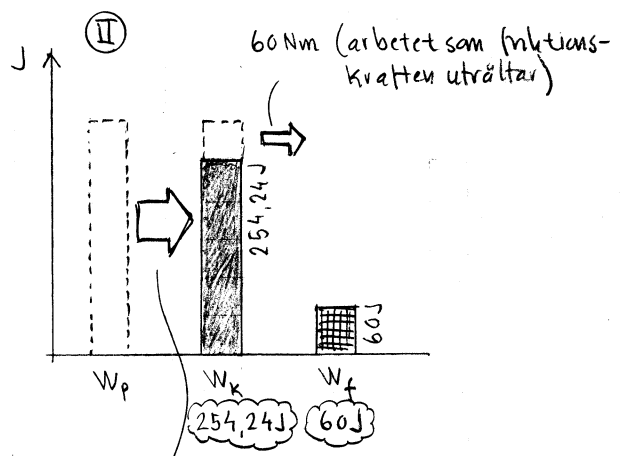 II
J
60 Nm (arbetet som friktions-
kraften uträttar)
254,24J
60J
Wp
Wk
Wf
254,24J
60J